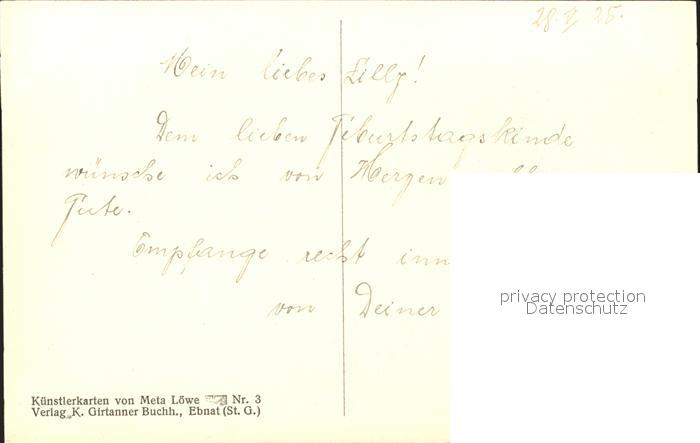 28. V 25.
Mein liebes Lilly!
Dem lieben Geburtstagskinde
wünsche ich von Herzen
Gute.
Empfange recht inn
von Deiner
privacy protection
Datenschutz
Künstlerkarten von Meta Löwe Nr. 3
Verlag K. Girtanner Buchh., Ebnat (St. G.)